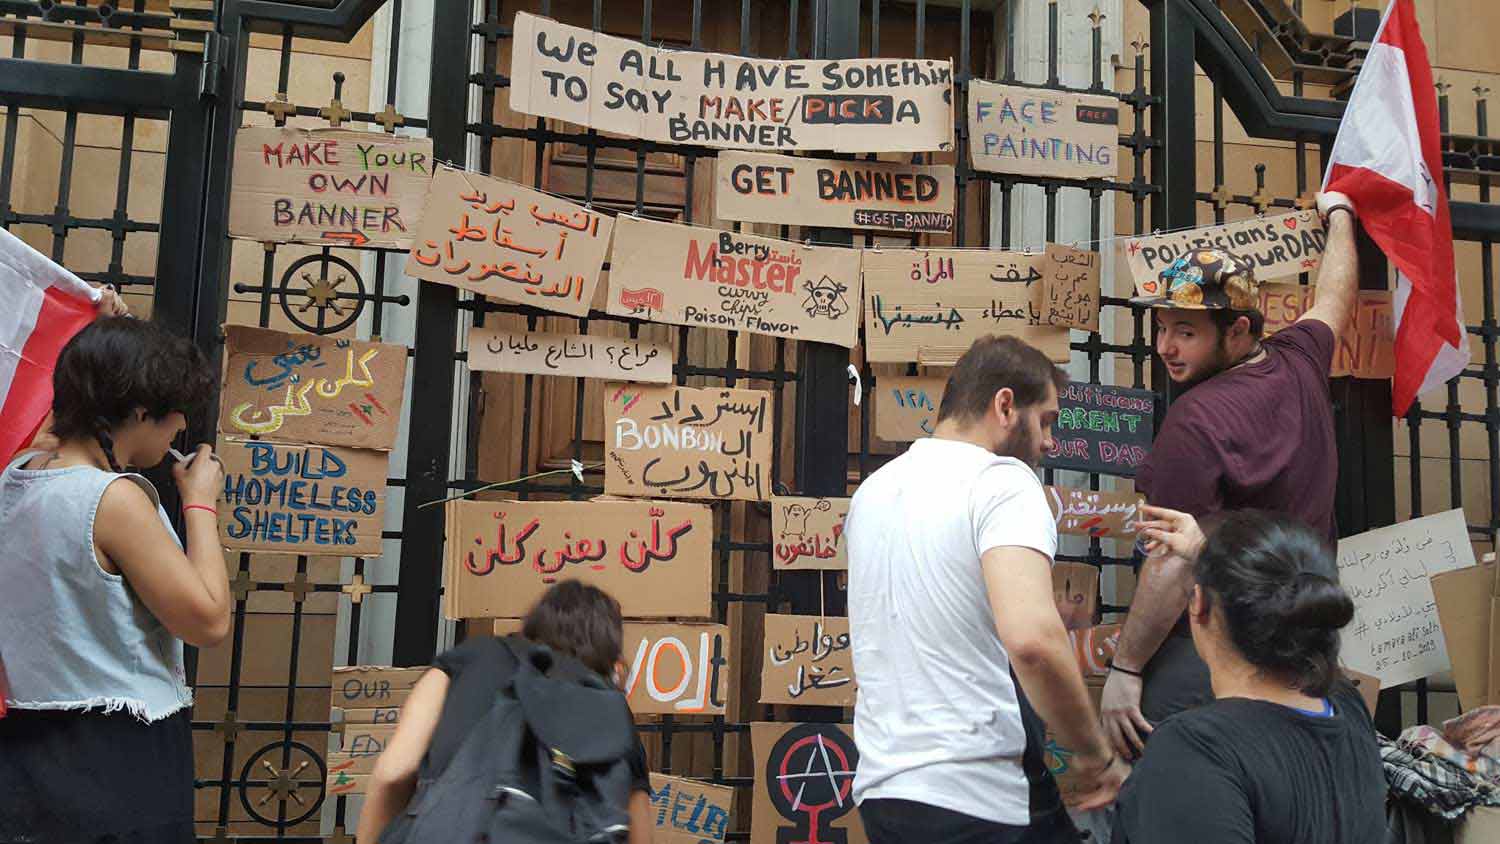 We ALL HAVE SOMEthin
TO SaY, MAKE/PICK A
BANNER
FACE FREE
PAINTING
MAKE YOUR
OWN
BANNER
GET BANNED
#GET-BANNED
الشعب يريد
أسقاط
الدينصورات
Berry
Master
curvy
chips
Poison Flavor
حقت المرأة
بإعطاء جنسيتها!
الشعب
POLITICIANS
OUR DAD
فراغ؟ الشارع مليان
كلّن يعني
كلّن
BUILD
HOMELESS
SHELTERS
استرداد
BONBON ال
المنهوب
١٢٨
POLITICIANS
AREN'T
OUR DAD
كلّن يعني كلّن
خائفون
مواطن
شغل
OUR
FO
EDU
A
MELES
tamara ali Salh
25_10_2019